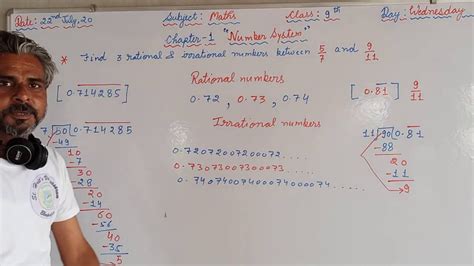 Date: 22nd July, 20 Subject: Maths Class: 9th Day: Wednesday
Chapter-1 "Number System"
* Find 3 rational & irrational numbers between 5/7 and 9/11
Rational numbers
[0.714285] 0.72, 0.73, 0.74 [0.81] 9/11
Irrational numbers
7 50 0.714285
-49
10
28
20
-14
60
-56
40
-35
5
0.7207200720007 2.....
0.7307300730007 3.....
0.74074007400074000074.....
11 90 0.81
-88
20
-11
9